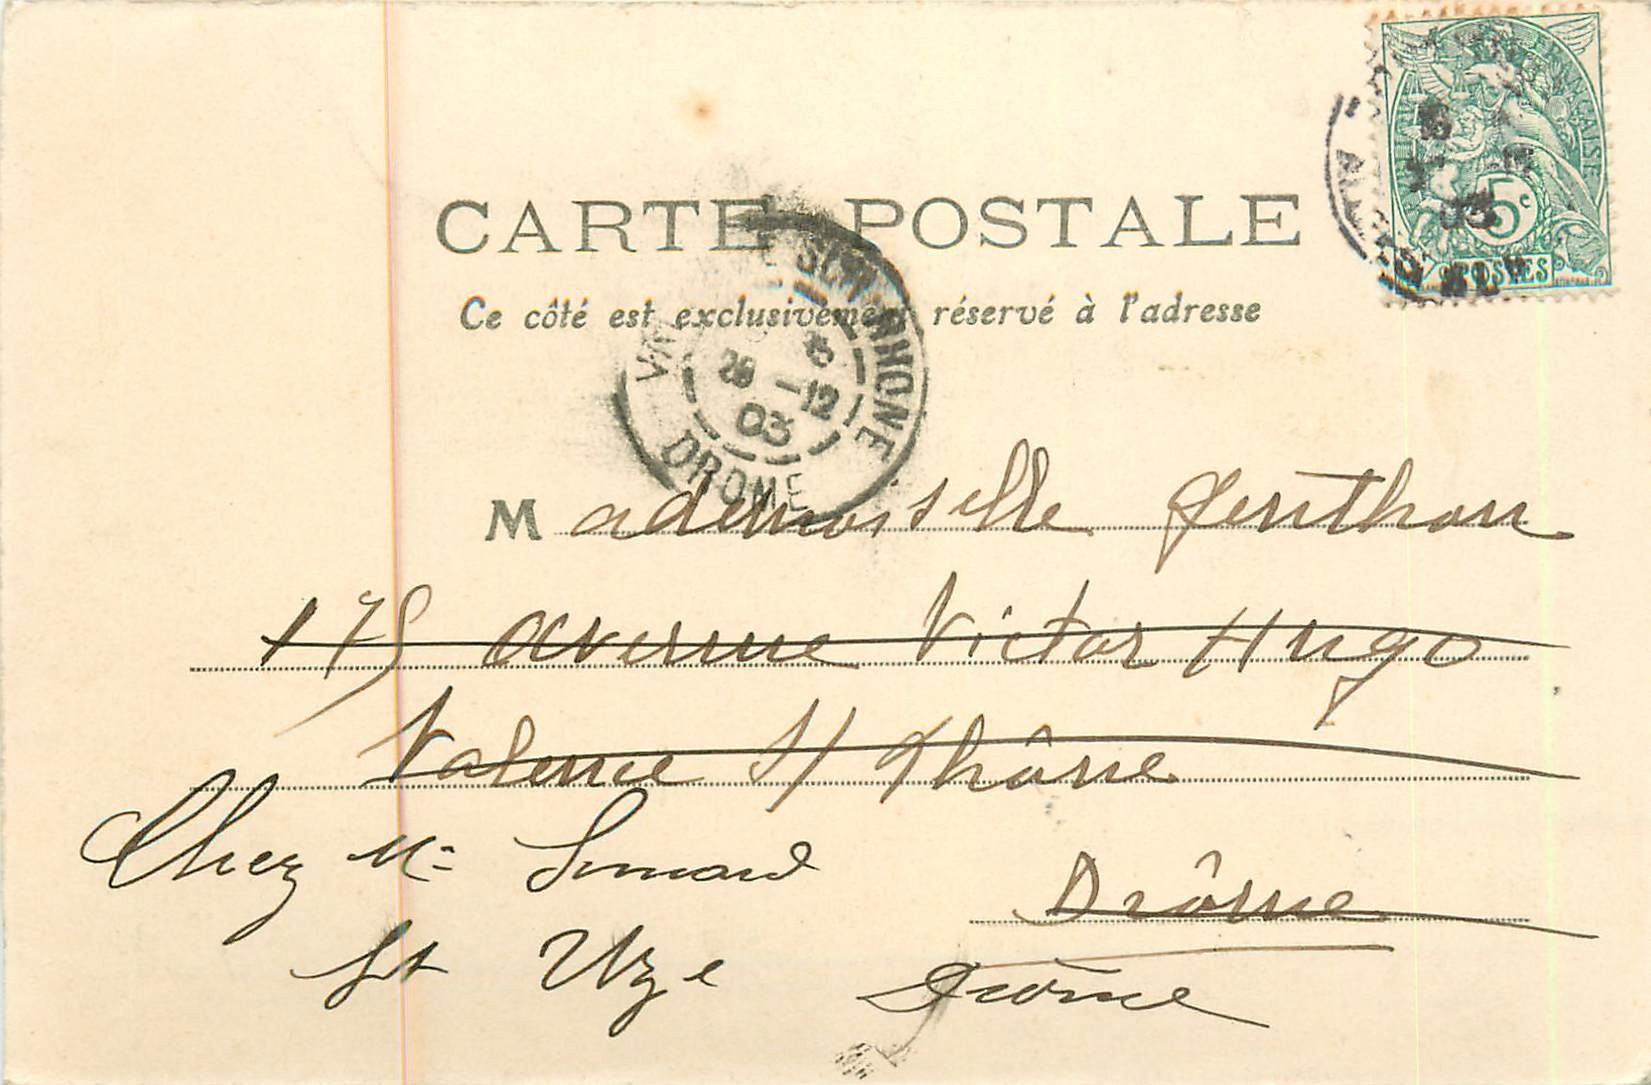 CARTE POSTALE
Ce côté est exclusivement réservé à l'adresse
RHONE
28 -12
03
DROME
5c
POSTES
03
Mademoiselle Genthon
175 avenue Victor Hugo
Valence s/ Rhône
Drôme
Chez Mr Simard
St Uze
Drôme